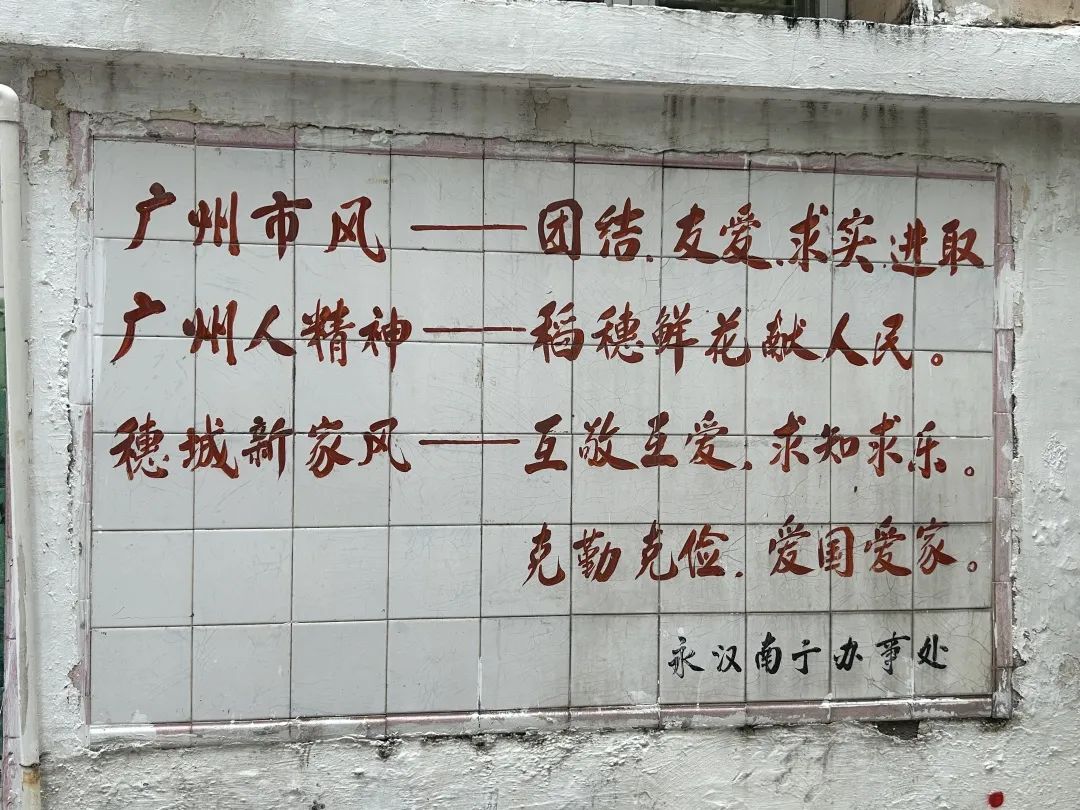 广州市风——团结、友爱、求实、进取
广州人精神——稻穗鲜花献人民。
穗城新家风——互敬互爱、求知求乐。
克勤克俭、爱国爱家。
永汉南亍办事处